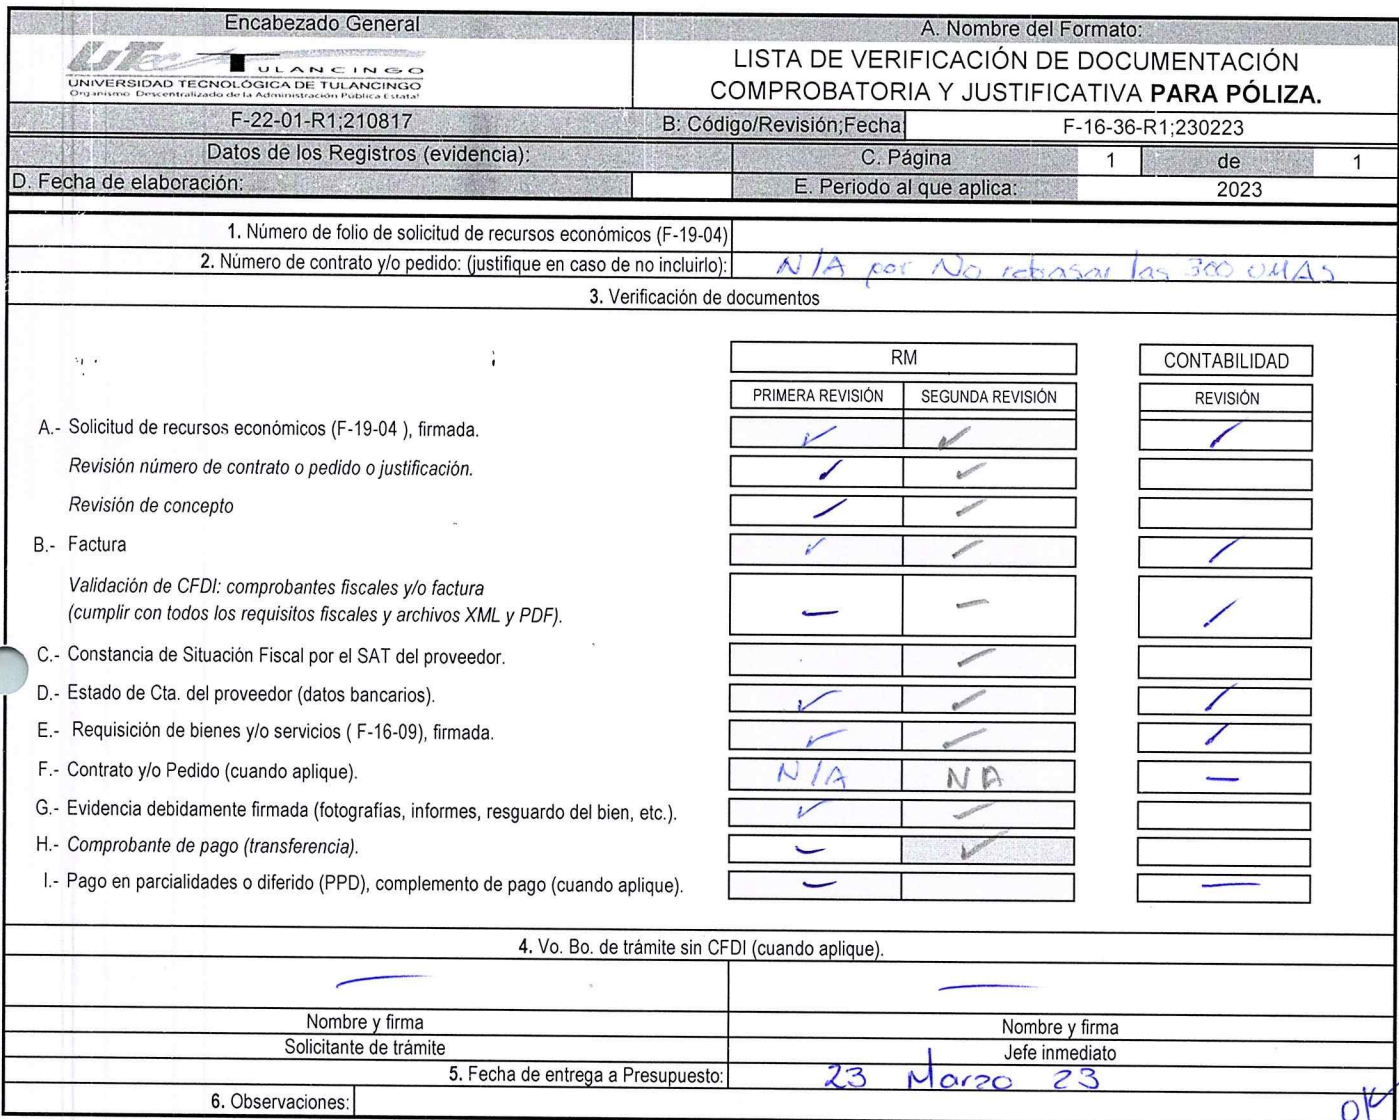 Encabezado General
A. Nombre del Formato:
UTec TULANCINGO
UNIVERSIDAD TECNOLÓGICA DE TULANCINGO
Organismo Descentralizado de la Administración Pública Estatal
LISTA DE VERIFICACIÓN DE DOCUMENTACIÓN
COMPROBATORIA Y JUSTIFICATIVA PARA PÓLIZA.
F-22-01-R1;210817
B: Código/Revisión;Fecha
F-16-36-R1;230223
Datos de los Registros (evidencia):
C. Página 1 de 1
D. Fecha de elaboración:
E. Periodo al que aplica: 2023
1. Número de folio de solicitud de recursos económicos (F-19-04)
2. Número de contrato y/o pedido: (justifique en caso de no incluirlo): N/A por No rebasar las 300 UMAS
3. Verificación de documentos
RM CONTABILIDAD
PRIMERA REVISIÓN SEGUNDA REVISIÓN REVISIÓN
A.- Solicitud de recursos económicos (F-19-04 ), firmada. ✓ ✓ ✓
Revisión número de contrato o pedido o justificación. ✓ ✓
Revisión de concepto ✓ ✓
B.- Factura ✓ ✓ ✓
Validación de CFDI: comprobantes fiscales y/o factura
(cumplir con todos los requisitos fiscales y archivos XML y PDF). — — ✓
C.- Constancia de Situación Fiscal por el SAT del proveedor. ✓
D.- Estado de Cta. del proveedor (datos bancarios). ✓ ✓ ✓
E.- Requisición de bienes y/o servicios ( F-16-09), firmada. ✓ ✓ ✓
F.- Contrato y/o Pedido (cuando aplique). N/A NA —
G.- Evidencia debidamente firmada (fotografías, informes, resguardo del bien, etc.). ✓ ✓
H.- Comprobante de pago (transferencia). — ✓
I.- Pago en parcialidades o diferido (PPD), complemento de pago (cuando aplique). — —
4. Vo. Bo. de trámite sin CFDI (cuando aplique).
— —
Nombre y firma Nombre y firma
Solicitante de trámite Jefe inmediato
5. Fecha de entrega a Presupuesto: 23 Marzo 23
6. Observaciones: OK